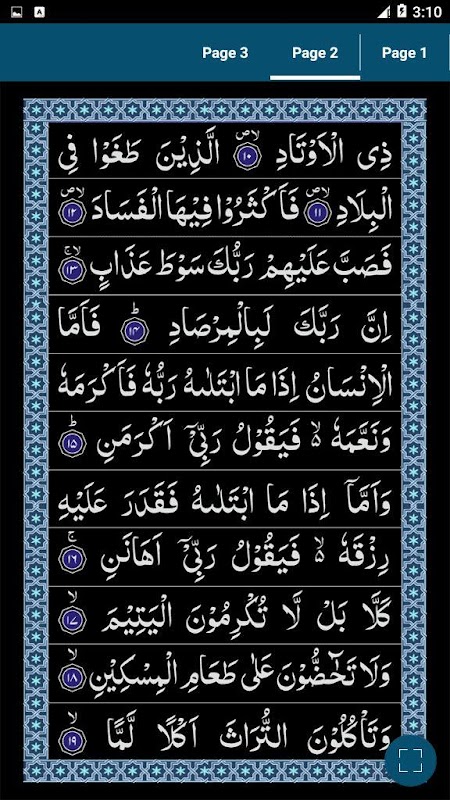 3:10
Page 3 Page 2 Page 1
ذِی الۡاَوۡتَادِ ﴿۱۰﴾۪ۙ الَّذِیۡنَ طَغَوۡا فِی
الۡبِلَادِ ﴿۱۱﴾۪ۙ فَاَکۡثَرُوۡا فِیۡهَا الۡفَسَادَ ﴿۱۲﴾۪ۙ
فَصَبَّ عَلَیۡهِمۡ رَبُّكَ سَوۡطَ عَذَابٍ ﴿۱۳﴾ۚۙ
اِنَّ رَبَّكَ لَبِالۡمِرۡصَادِ ﴿۱۴﴾ؕ فَاَمَّا
الۡاِنۡسَانُ اِذَا مَا ابۡتَلٰىهُ رَبُّهٗ فَاَکۡرَمَهٗ
وَنَعَّمَهٗ ۙ فَیَقُوۡلُ رَبِّیۡۤ اَکۡرَمَنِ ﴿۱۵﴾ؕ
وَاَمَّاۤ اِذَا مَا ابۡتَلٰىهُ فَقَدَرَ عَلَیۡهِ
رِزۡقَهٗ ۙ فَیَقُوۡلُ رَبِّیۡۤ اَهَانَنِ ﴿۱۶﴾ۚ
کَلَّا بَلۡ لَّا تُکۡرِمُوۡنَ الۡیَتِیۡمَ ﴿۱۷﴾ۙ
وَلَا تَحٰٓضُّوۡنَ عَلٰی طَعَامِ الۡمِسۡکِیۡنِ ﴿۱۸﴾ۙ
وَتَاۡکُلُوۡنَ التُّرَاثَ اَکۡلًا لَّمًّا ﴿۱۹﴾ۙ